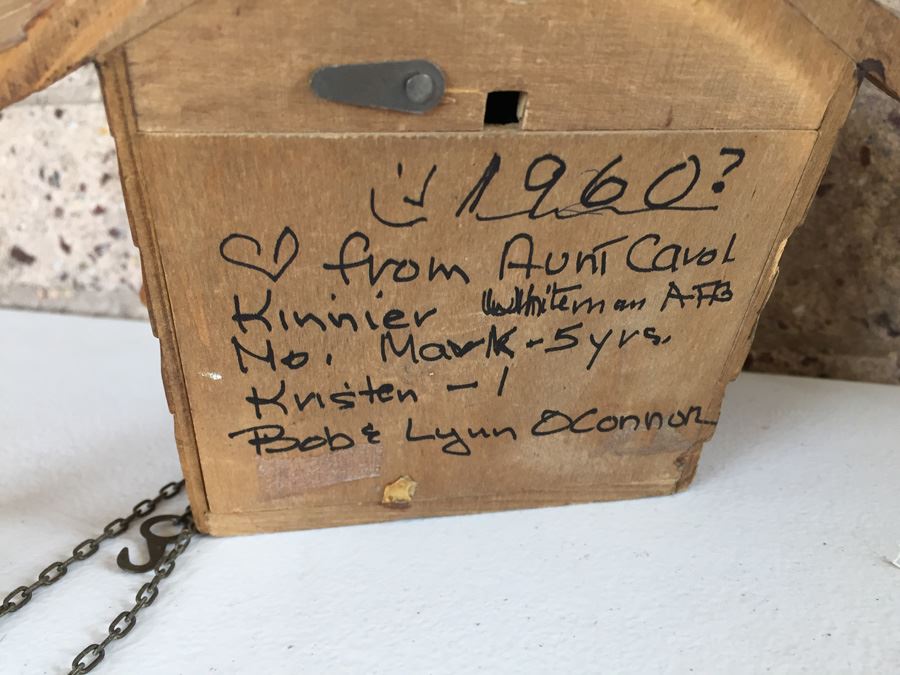 1960?
from Aunt Carol
Kinnier Whiteman AFB
Mo. Mark - 5 yrs.
Kristen - 1
Bob & Lynn OConnor